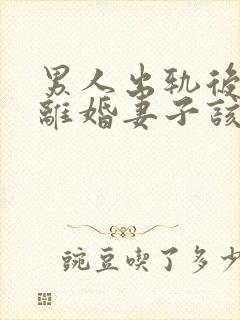 男人出轨後
離婚妻子該
豌豆喫了多少